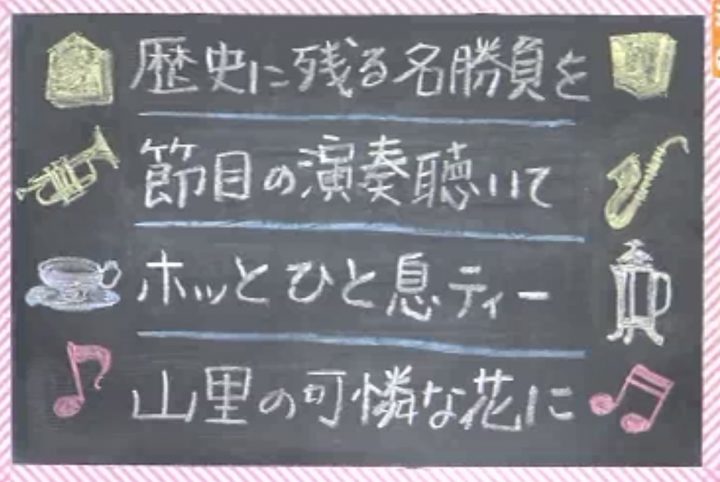 歴史に残る名勝負を
節目の演奏聴いて
ホッとひと息ティー
山里の可憐な花に